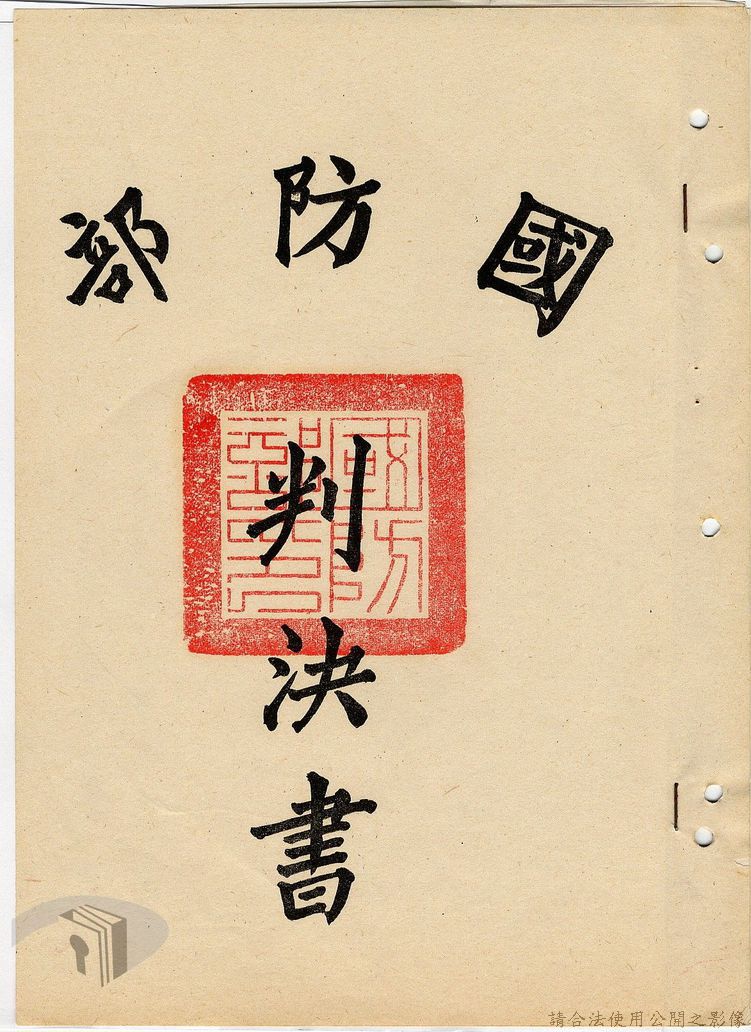 國防部
判決書
國防部印
請合法使用公開之影像